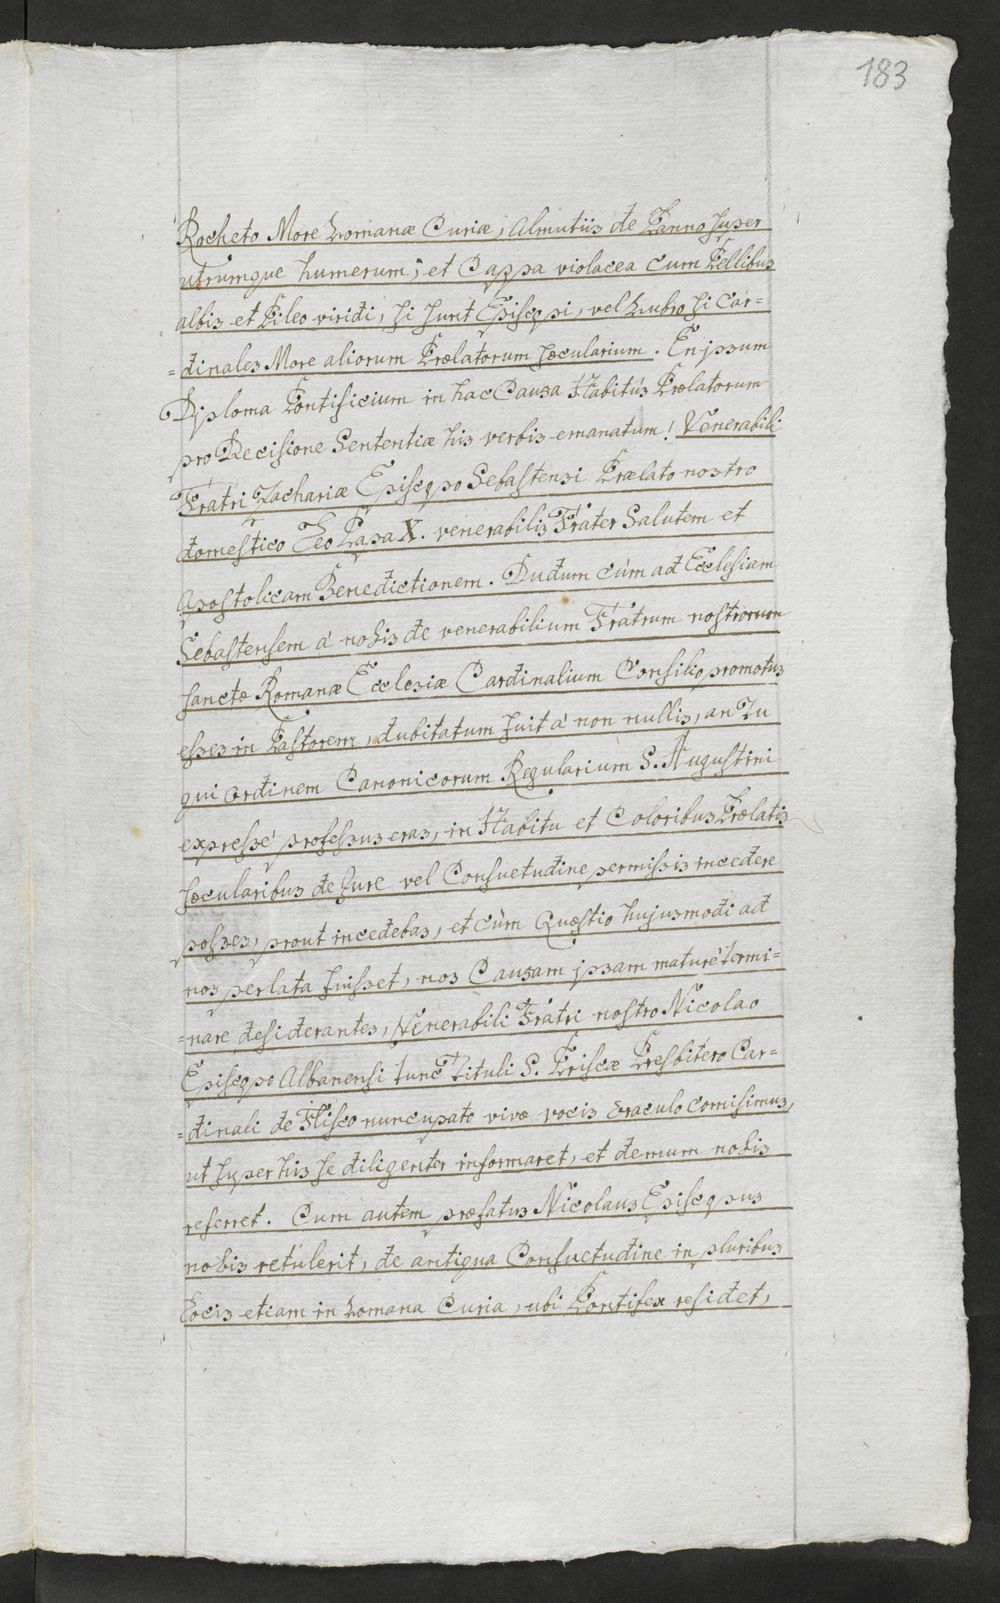 183
Rocheto More Romanæ Curiæ, Almutiis de Panno super
utrumque humerum, et Cappa violacea cum Pellibus
albis et Pileo viridi, si sunt Episcopi, vel Rubro si Car=
=dinales More aliorum Prælatorum sæcularium. En jpsum
Diploma Pontificium in hac Causa Habitûs Prælatorum
pro Decisione Sententiæ his verbis emanatum! Venerabili
Fratri Zachariæ Episcopo Sebastensi Prælato nostro
domestico Leo Papa X. venerabilis Frater Salutem et
Apostolicam Benedictionem. Dudum cùm ad Ecclesiam
Sebastensem à nobis de venerabilium Fratrum nostrorum
sanctæ Romanæ Ecclesiæ Cardinalium Consilio promotus
esses in Pastorem, dubitatum fuit à non nullis, an Tu
qui ordinem Canonicorum Regularium S. Augustini
expressè professus eras, in Habitu et Coloribus Prælatis
sæcularibus de Jure vel Consuetudine permissis incedere
posses, prout incedebas, et cùm Quæstio hujusmodi ad
nos perlata fuisset, nos Causam jpsam maturè termi=
=nare desiderantes, Venerabili Fratri nostro Nicolao
Episcopo Albanensi tunc Tituli S. Priscæ Presbitero Car=
=dinali de Flisco nuncupato vivæ vocis oraculo comisimus,
ut super his se diligenter informaret, et demum nobis
referret. Cum autem præfatus Nicolaus Episcopus
nobis retulerit, de antiqua Consuetudine in pluribus
Locis etiam in Romana Curia, ubi Pontifex residet,